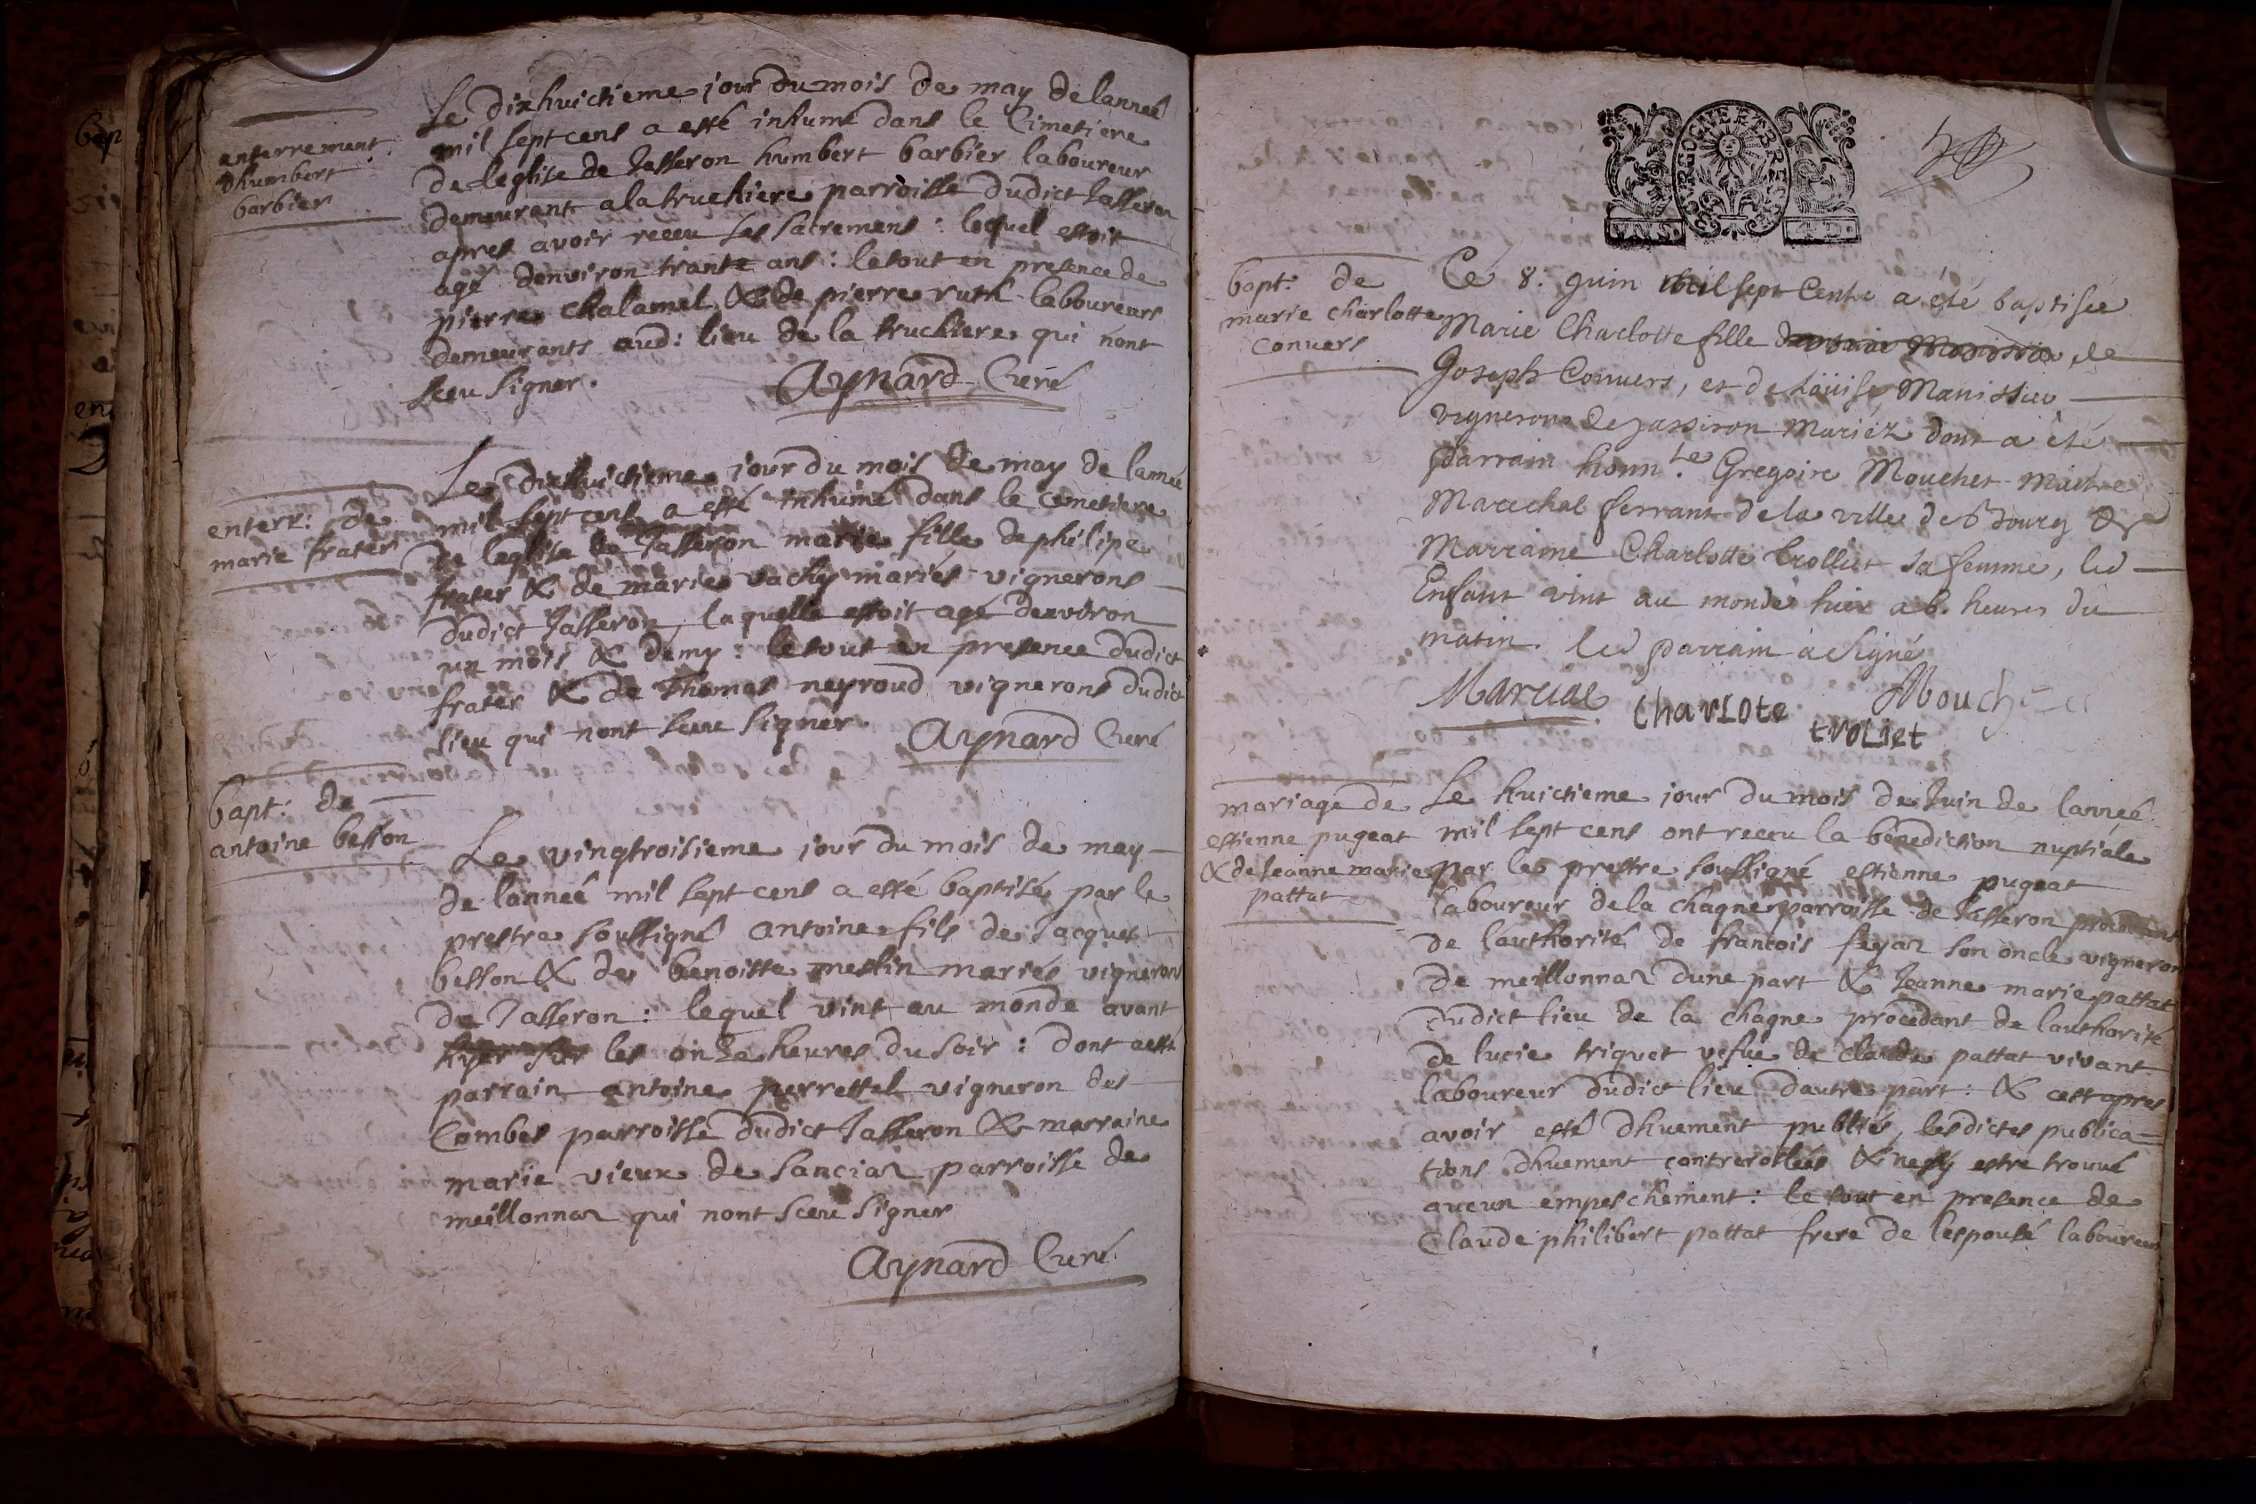 enterrement
dhumbert
barbier
Le dixhuictieme jour du mois de may de lanneé
mil sept cens a esté inhumé dans le Cimetiere
de leglise de Jasseron humbert barbier laboureur
demeurant a la truchiere parroisse dudict Jasseron
apres avoir receu les sacremens : lequel estoit
agé denviron trante ans : le tout en presence de
pierre chalamel & de pierre ruth laboureurs
demeurants aud: lieu de la truchiere qui nont
sceu signer.
Aynard Curé
enterr: de
marie frater
Le dixhuictieme jour du mois de may de lanneé
mil sept cens a esté inhumé dans le cemetiere
de leglise de Jasseron marie fille de philipe
frater & de marie vachy mariés vignerons
dudict Jasseron, laquelle estoit agé denviron
un mois & demy : le tout en presence dudict
frater & de Thomas neyroud vignerons dudict
lieu qui nont sceu signer.
Aynard Curé
bapt: de
antoine besson
Le vingtroisieme jour du mois de may
de lanneé mil sept cens a esté baptisé par le
prestre soussigné antoine fils de Jacques
besson & de benoiste meslin mariés vignerons
de Jasseron : lequel vint au monde avant
hyer sur les onze heures du soir : dont a esté
parrain antoine perrettel vigneron des
Combes parroisse dudict Jasseron & marraine
marie vieux de sanciaz parroisse de
meillonnaz qui nont sceu signer
Aynard Curé
BOVRGOGNE ET BRESSE
bapt: de
marie charlotte
convers
Ce 8. Juin mil sept Cents a été baptisée
Marie Charlotte fille de
Joseph Convers, et de Loüise Manissier
vignerons de Jasseron Mariéz dont a été
parrain honn.te Gregoire Mouchet maitre
Marechal ferrant de la ville de Bourg &
Marraine Charlotte trolliet sa femme, led
Enfant vint au monde hier a 6. heures du
matin. led parrain a signé
Marcial Charlote Mouch
troliet
mariage de
estienne pugeat
& de Jeanne marie
pattat
Le huictieme jour du mois de Juin de lanneé
mil sept cens ont receu la benediction nuptiale
par le prestre soussigné estienne pugeat
laboureur de la chagne parroisse de Jasseron procedant
de lauthorité de francois feyaz son oncle vigneron
de meillonnaz dune part & Jeanne marie pattat
dudict lieu de la chagne procedant de lauthorité
de lucie triquet vefue de claude pattat vivant
laboureur dudict lieu dautre part : & cest apres
avoir esté dhuement publiés, lesdictes publica-
tions dhuement contrerollées & nesy estre trouvé
aucun empeschement : le tout en presence de
Claude philibert pattat frere de lespousé laboureur